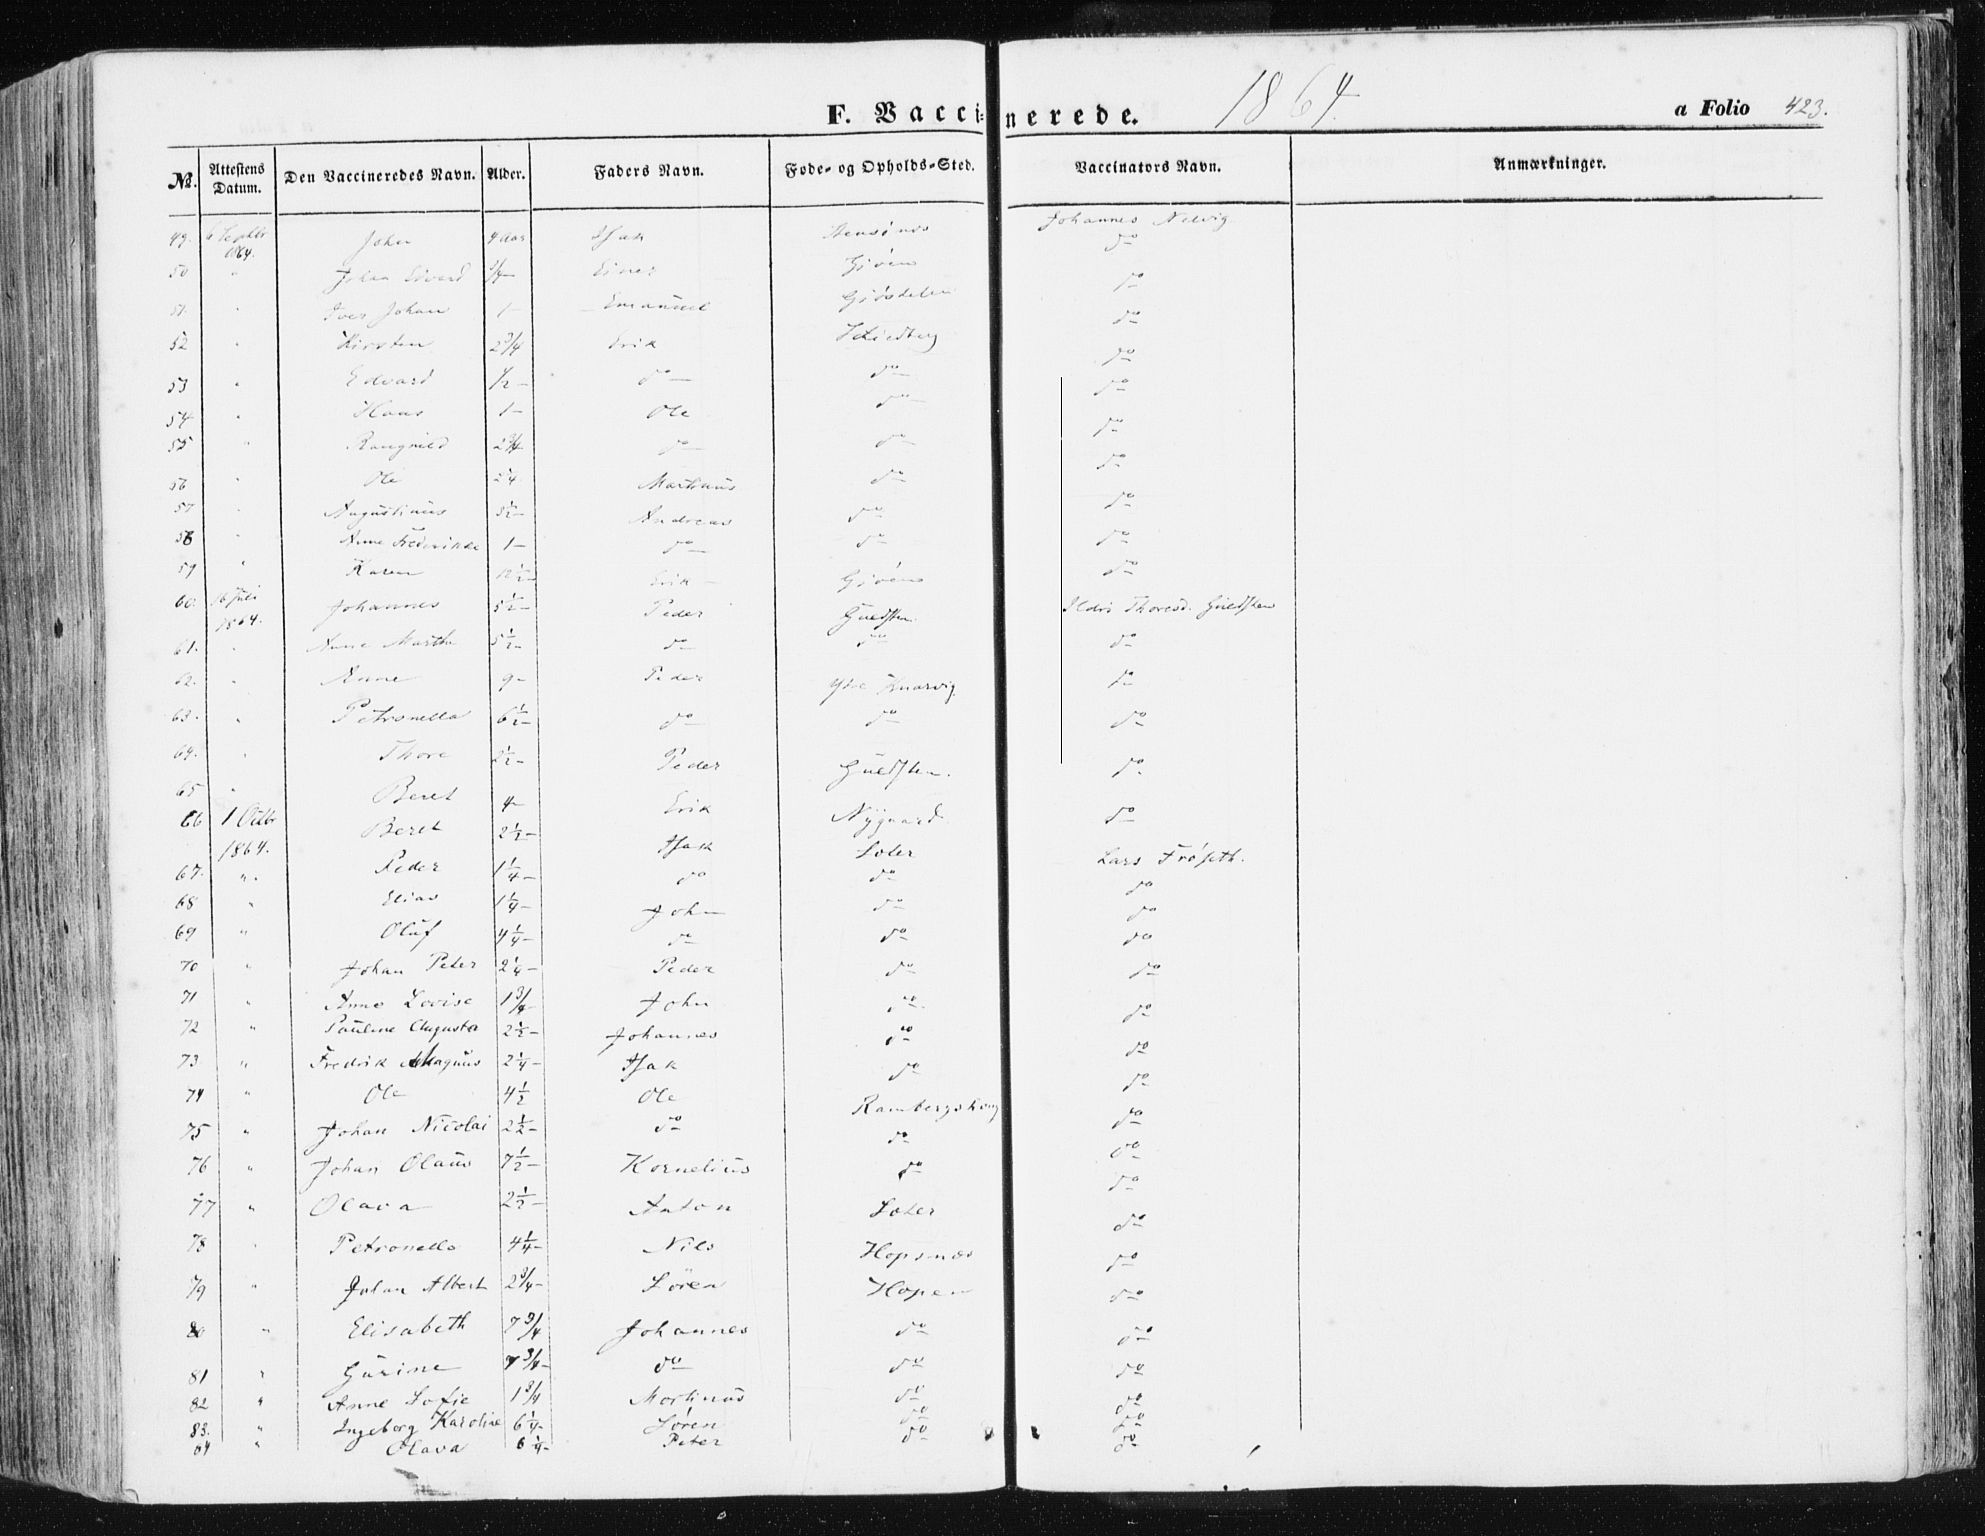 F. Vaccinerede. 1864. a Folio 423.
№. Attestens Datum. Den Vaccineredes Navn. Alder. Faders Navn. Føde- og Opholds-Sted. Vaccinators Navn. Anmærkninger.
49. 6 Septbr 1864. John 4 Aar Isak Johannes Nelvig
50 " Johan Edvard 3/4 – Einer Gjøen do
51. " Iver Johan 1 – Emanuel Gjøsdalen do
52 " Kirsten 2 3/4 Erik do
53 " Edvard 1/2 – do do do
54 " Hans 1 – Ole do do
55 " Rangnild 2 3/4 do do do
56 " Ole Martinus do do
57 " Augustinus 5 1/2 – Andreas do do
58 " Anne Frederikke 1 – do do do
59 " Karen Erik – Gjøen do
60. 16 Juli 1864. Johannes 5 1/2 – Peder Guldsten Ildri Thoresd. Guldsten
61. " Anne Martha 5 1/2 – do do do
62. " Anne 9 – Peder Ytre Knarvig do
63. " Petronella 6 1/2 – do do do
64. " Thore 2 1/2 – Peder Guldsten. do
65 " Beret 4 – Erik Nygaard do
66 1 Octbr 1864. Beret 2 1/2 – Isak Soler Lars Frøseth.
67. " Peder 1 1/4 – do do do
68 " Elias 1 1/4 – John do do
69 " Oluf 4 1/4 – do do do
70 " Johan Peter 2 1/4 – Peder do do
71 " Anne Lovise 1 3/4 – John do do
72 " Pauline Augusta 2 1/2 – Johannes do do
73 " Fredrik Magnus 2 1/4 – Isak do do
74 " Ole 4 1/2 Ole Rambergshoug do
75 " Johan Nicolai 2 1/2 – do do do
76 " Johan Olaus 7 1/2 – Kornelius do do
77 " Olava 2 1/2 – Anton Soler do
78 " Petronella 4 1/4 – Nils Hopsnæs do
79 " Johan Albert 2 3/4 – Sören Hopen do
80 " Elisabeth 7 3/4 Johannes do do
81 " Gurine 7 3/4 – do do do
82 " Anne Sofie 1 3/4 Mortinus do do
83. " Ingeborg Karoline 6 1/4 – Søren do do
84 " Olava 6 1/4 – Peter do do